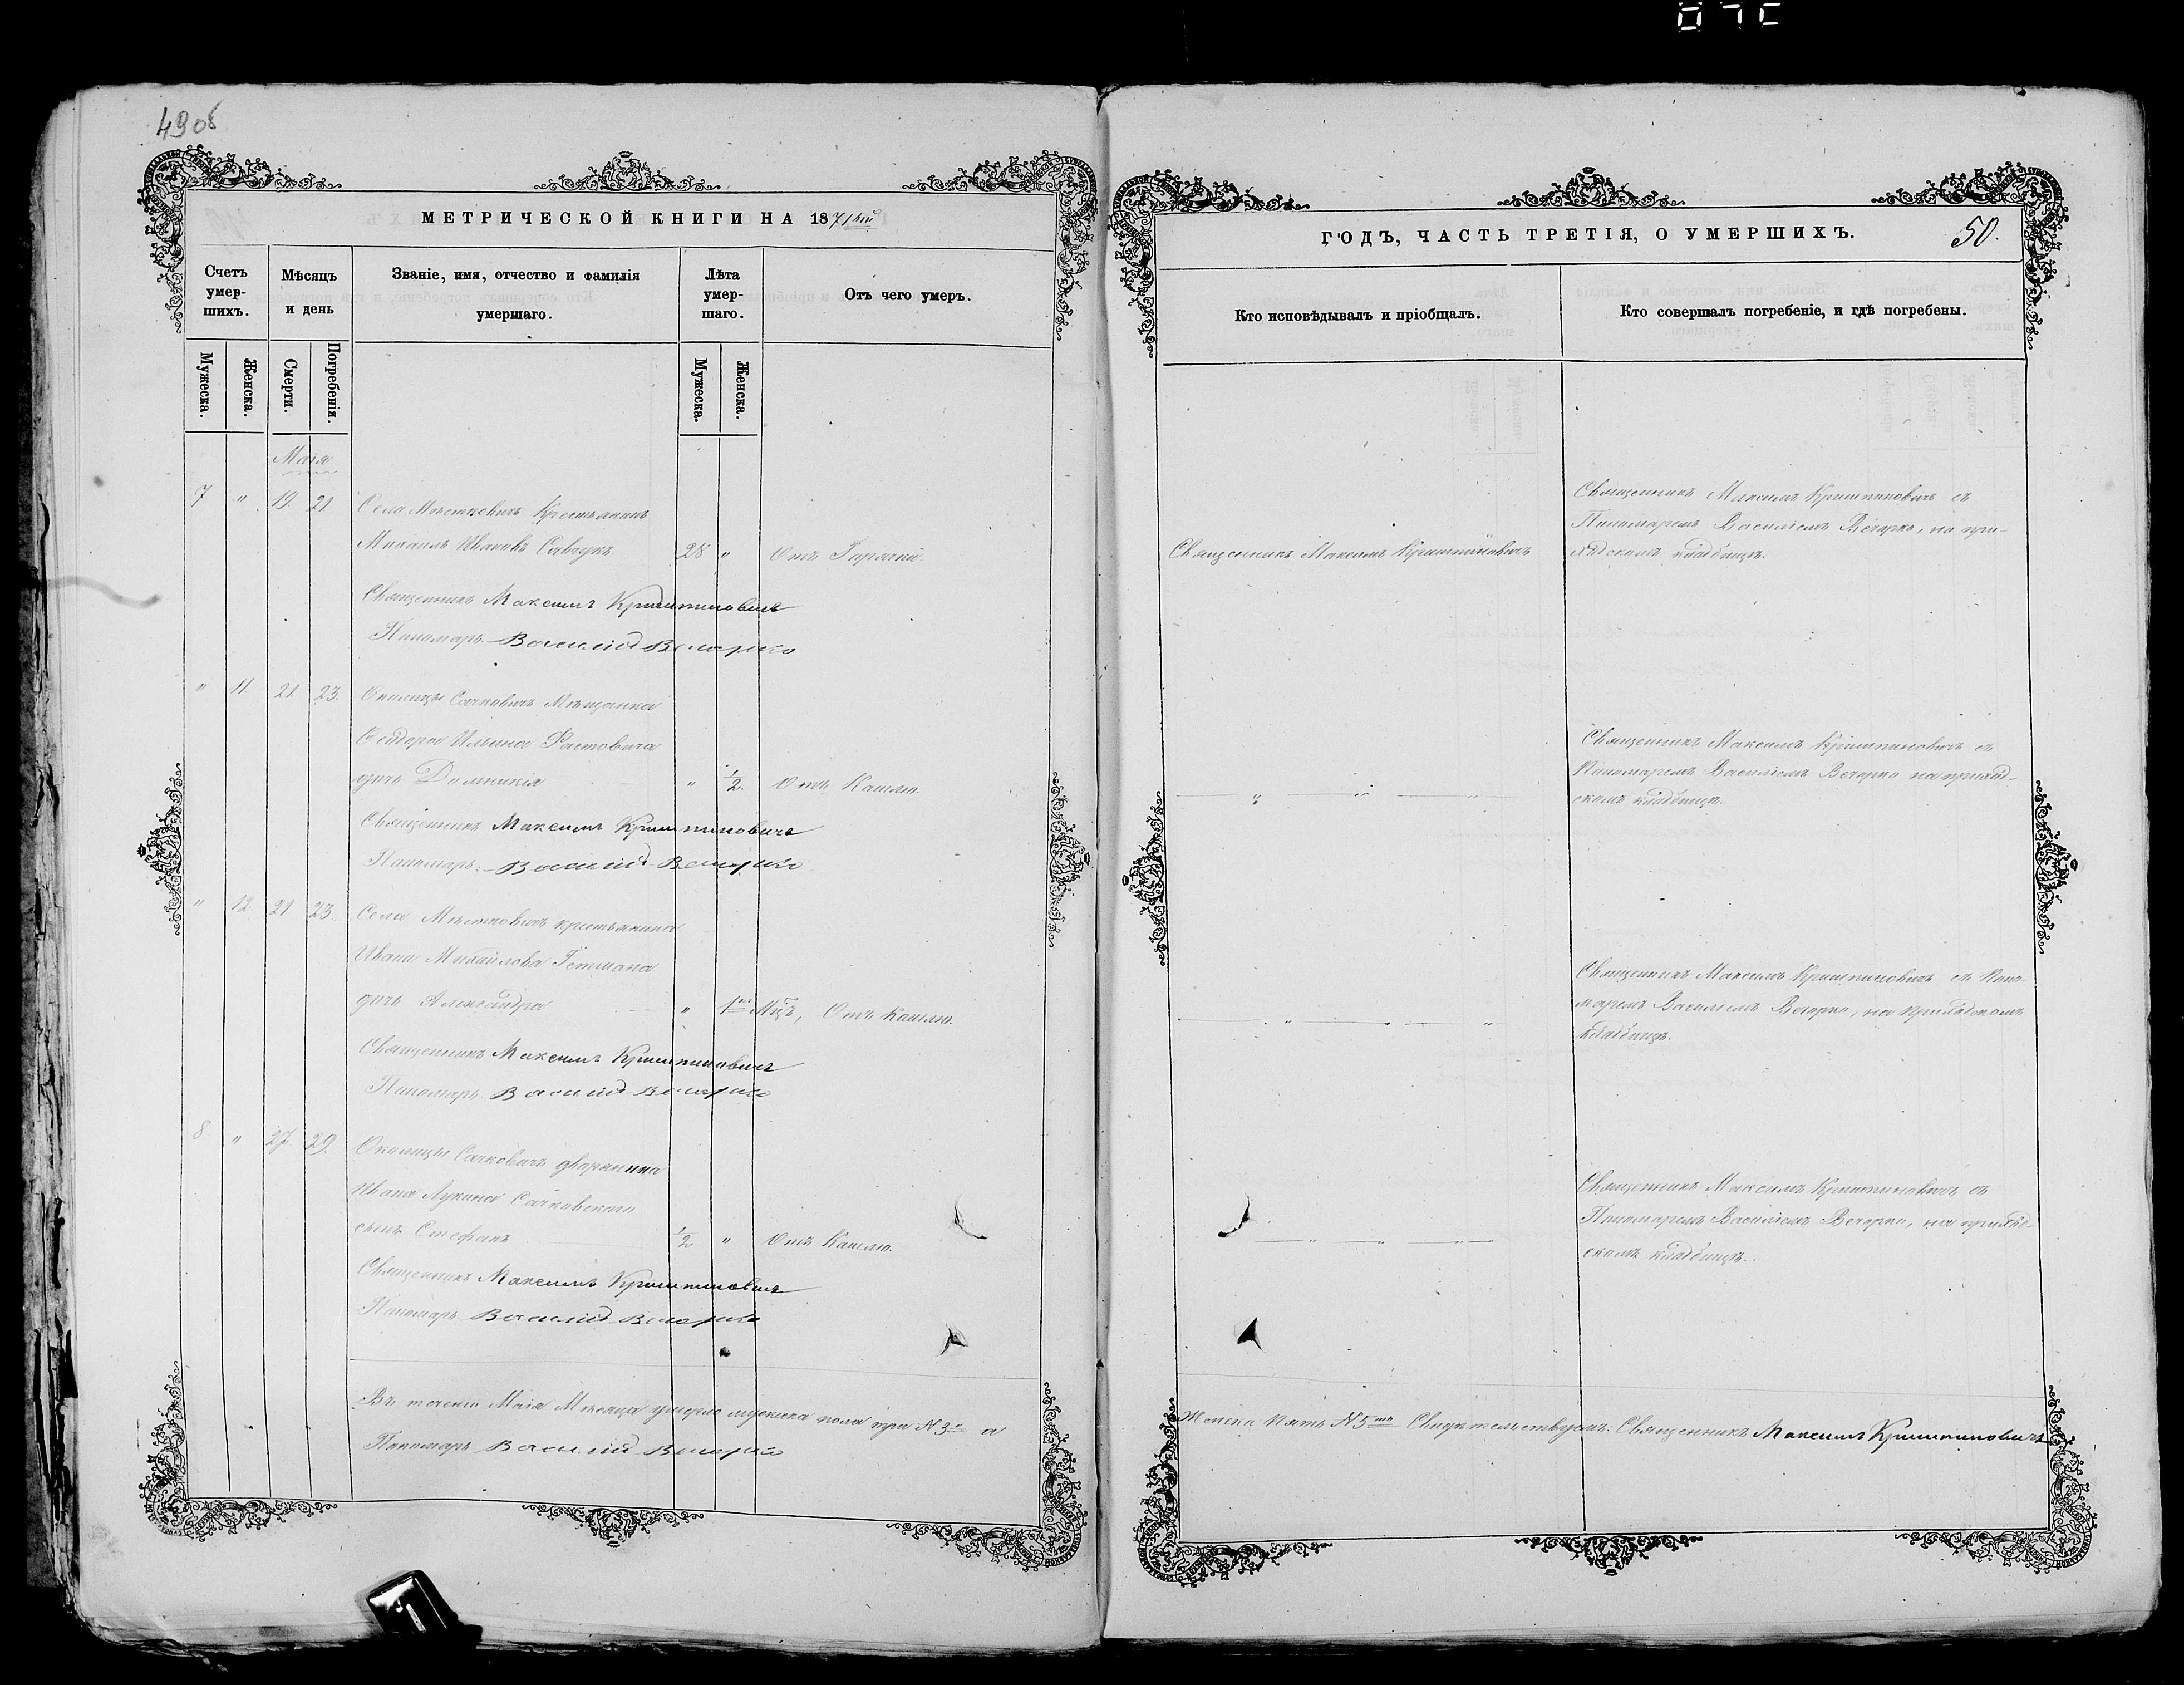 490б
МЕТРИЧЕСКОЙ КНИГИ НА 1871й
Счетъ умер-шихъ.
Мѣсяцъ и день
Званіе, имя, отчество и фамилія умершаго.
Лѣта умер-шаго.
Отъ чего умеръ.
Мужеска.
Женска.
Смерти.
Погребенія.
Мужеска.
Женска.
Маія
7 " 19 21 Села Мѣстковичъ Крестьянинъ
Михаилъ Ивановъ Савчукъ 28 " Отъ Горячки
Священникъ Максимъ Криштиновичъ
Пономарь Василій Вечорко
" 11 21 23. Околицы Сачковичъ Мѣщанина
Ѳедора Ильина
дочь Домникія " 1/2. Отъ Кашлю.
Священникъ Максимъ Криштиновичъ
Пономарь Василій Вечорко
" 12 21 23 Села Мѣстковичъ крестьянина
Ивана Михайлова Гетмана
дочь Александра " 1 Мцъ, Отъ Кашлю.
Священникъ Максимъ Криштиновичъ
Пономарь Василій Вечорко
8 " 27 29. Околицы Сачковичъ дворянина
Ивана Лукина Сачковского
сынъ Стефанъ 1/2 " Отъ Кашлю.
Священникъ Максимъ Криштиновичъ
Пономарь Василій Вечорко
Въ теченіи Маія Мѣсяца умерло мужеска пола три N 3. а
Пономарь Василій Вечорко
ГОДЪ, ЧАСТЬ ТРЕТІЯ, О УМЕРШИХЪ.
50.
Кто исповѣдывалъ и пріобщалъ.
Кто совершалъ погребеніе, и гдѣ погребены.
Священникъ Максимъ Криштиновичъ
Священникъ Максимъ Криштиновичъ съ
Пономаремъ Василіемъ Вечорко, на при-
ходскомъ кладбищѣ.
Священникъ Максимъ Криштиновичъ съ
Пономаремъ Василіемъ Вечорко на приход-
скомъ кладбищѣ.
Священникъ Максимъ Криштиновичъ съ Поно-
маремъ Василіемъ Вечорко, на приходскомъ
кладбищѣ.
Священникъ Максимъ Криштиновичъ съ
Пономаремъ Василіемъ Вечорко, на приход-
скомъ кладбищѣ.
Женска пять N 5ть Свидѣтельствуемъ: Священникъ Максимъ Криштиновичъ